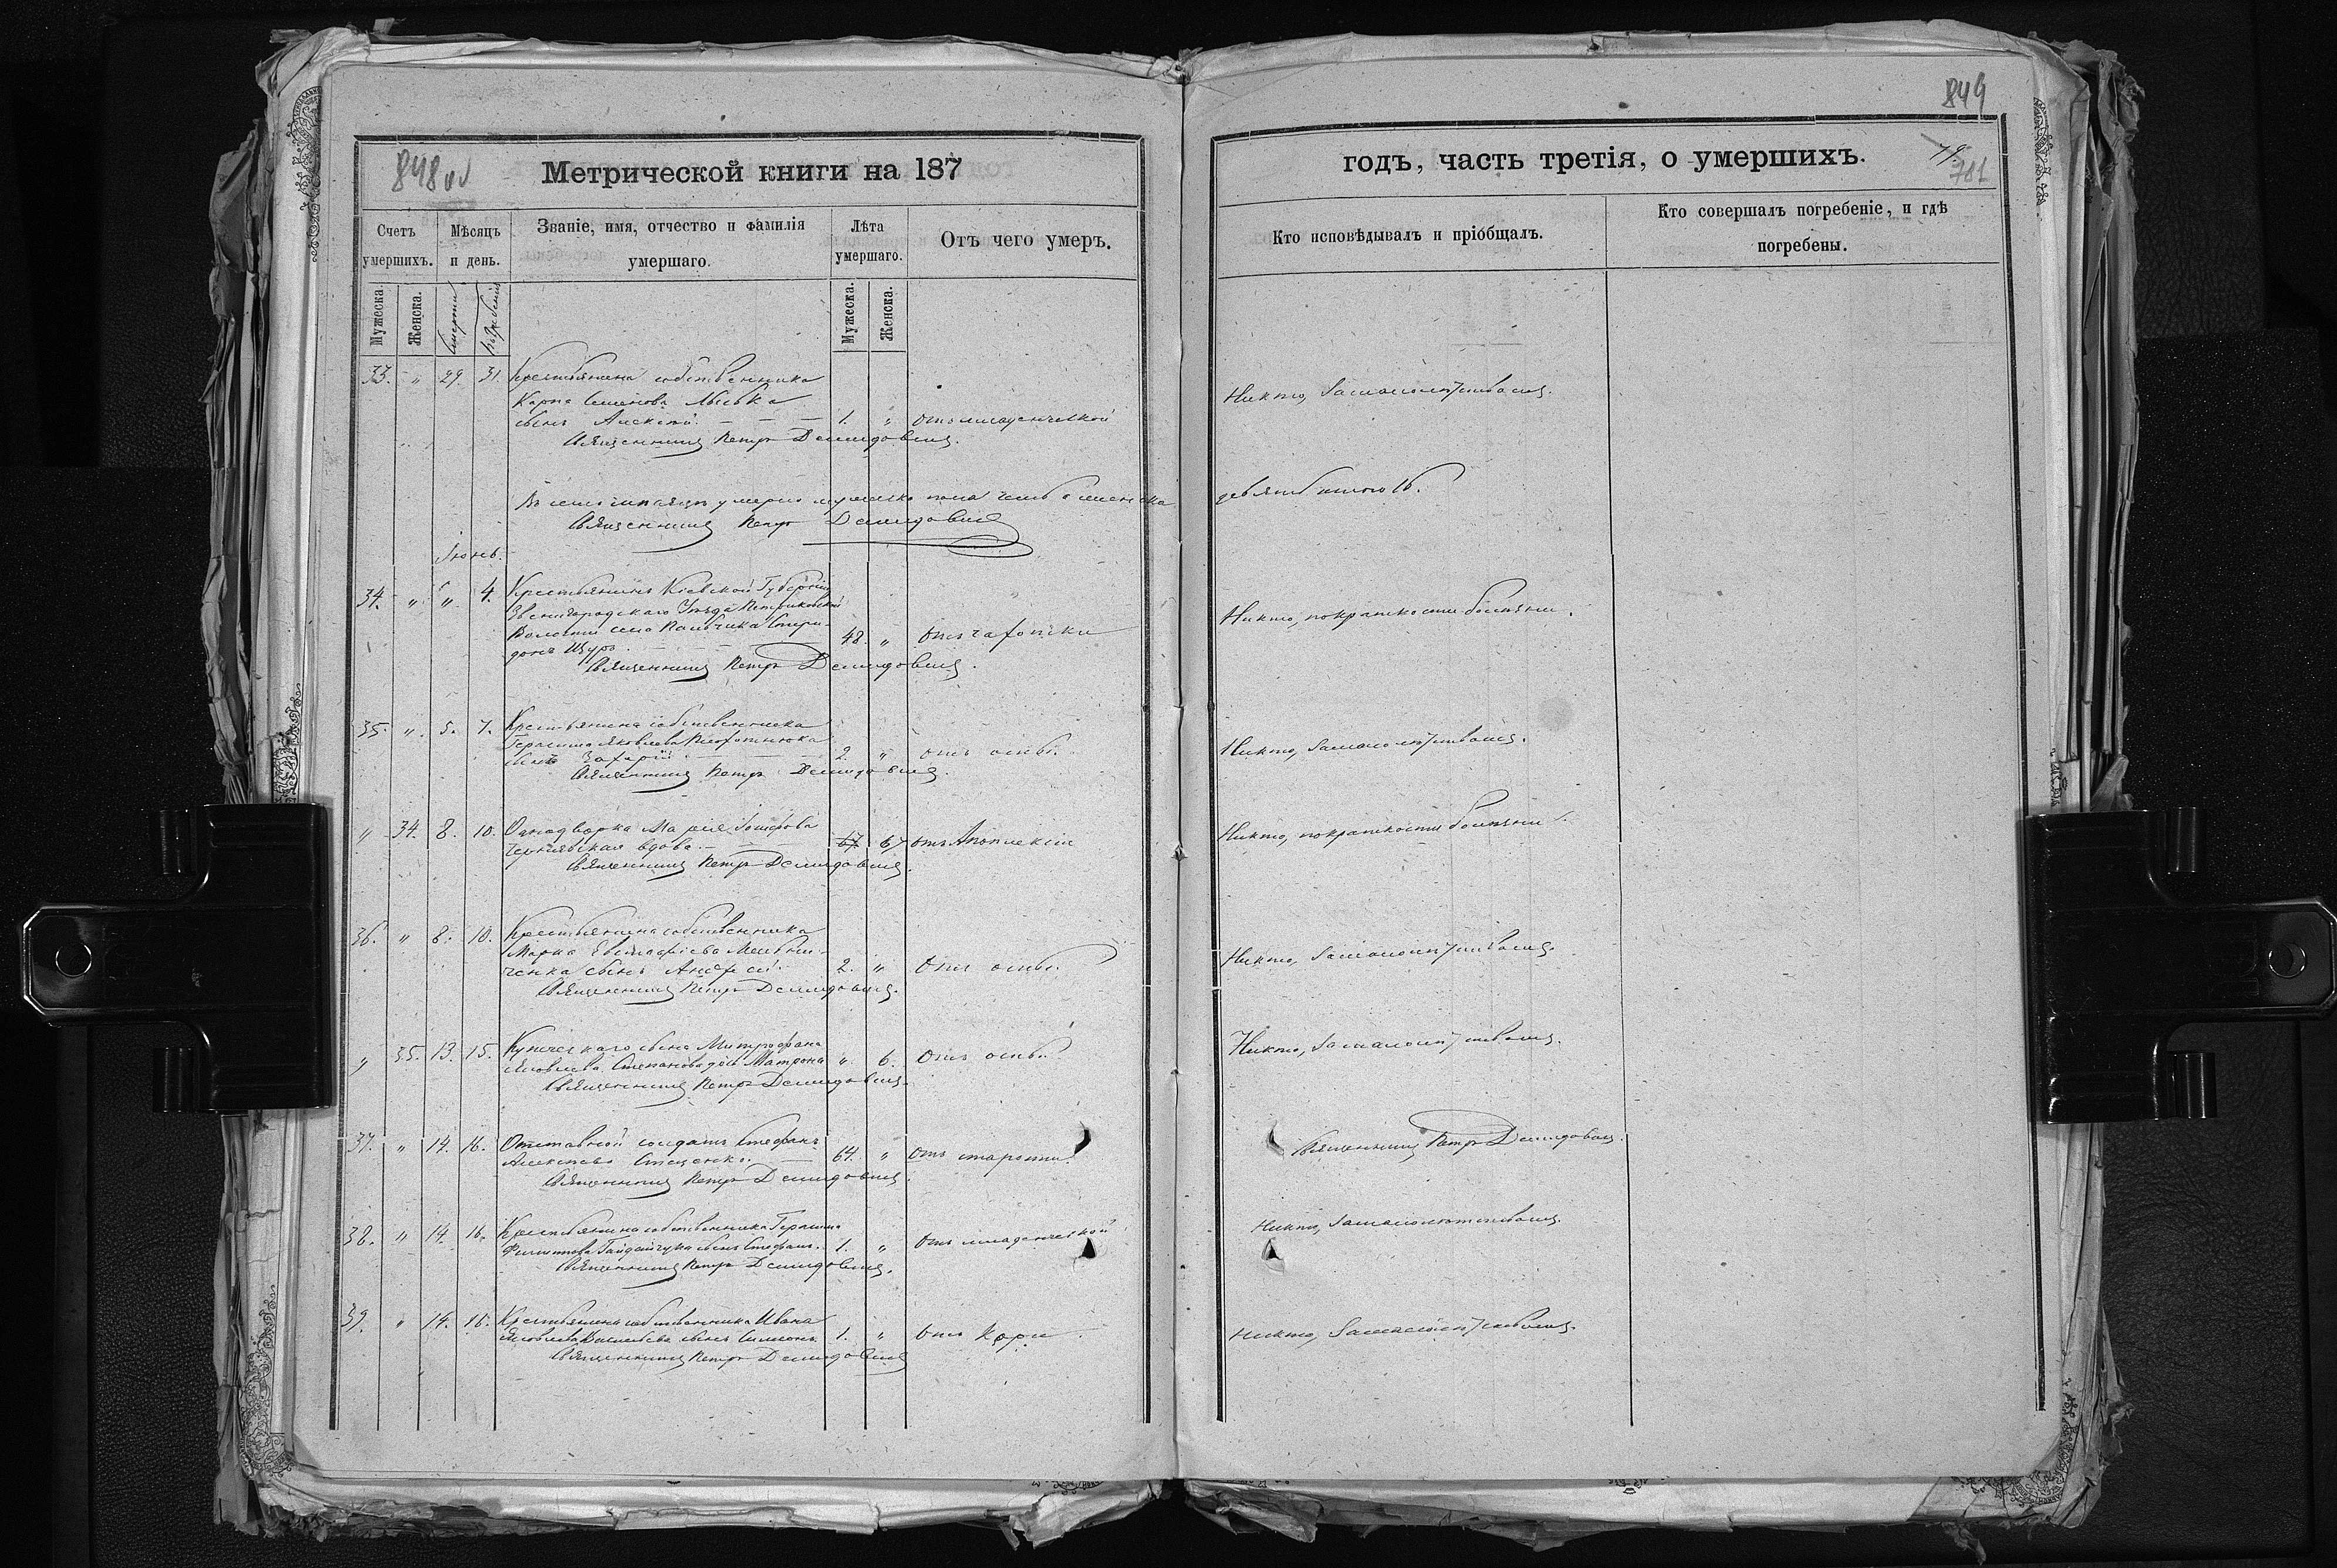 848 об
Метрической книги на 187
Счетъ умершихъ.
Мѣсяцъ и день.
Званіе, имя, отчество и фамилія умершаго.
Лѣта умершаго.
Отъ чего умеръ.
Мужеска.
Женска.
Смерти
погребенія
Мужеска.
Женска.
33. " 29. 31. Крестьянина собственника
Карпа Семенова
сынъ Алексѣй. — — 1. " отъ младенческой
Священникъ Петръ Демидовичъ.
умерло мужеска пола
Священникъ Петръ Демидовичъ
Іюнь.
34. " " 4. Крестьянинъ Кіевской Губерніи
Звенигородскаго Уѣзда
Волости села Пальчика Спири-
донъ Щуръ. — — 48. " отъ чахотки
Священникъ Петръ Демидовичъ.
35. " 5. 7. Крестьянина собственника
Герасима Яковлева
сынъ Захарій. — — 2. " отъ оспы.
Священникъ Петръ Демидовичъ.
" 34. 8. 10. Однодворка Марія Іосифова
вдова. — — 67 67 отъ Апоплексіи
Священникъ Петръ Демидовичъ.
36. " 8. 10. Крестьянина собственника
Марка Евстафіева Мельни-
ченка сынъ Андрей. 2. " Отъ оспы.
Священникъ Петръ Демидовичъ.
" 35. 13. 15. Купеческаго сына Митрофана
Яковлева Степанова дочь Матрона ". 6. Отъ оспы.
Священникъ Петръ Демидовичъ.
37. " 14. 16. Отставной солдатъ Стефанъ
Алексѣевъ — 64. " Отъ старости.
Священникъ Петръ Демидовичъ.
38. " 14. 16. Крестьянина собственника Герасима
Филиппова Гайдайчука сынъ Стефанъ. 1. " Отъ младенческой
Священникъ Петръ Демидовичъ.
39. " 14. 16. Крестьянина собственника Ивана
Яковлева сынъ Симеонъ 1. " Отъ кори.
Священникъ Петръ Демидовичъ
849
годъ, часть третія, о умершихъ.
79.
701
Кто исповѣдывалъ и пріобщалъ.
Кто совершалъ погребеніе, и гдѣ погребены.
Никто, за малолѣтствомъ.
девять итого 16.
Никто, по краткости болѣзни.
Никто, за малолѣтствомъ.
Никто, по краткости болѣзни.
Никто, за малолѣтствомъ.
Никто, за малолѣтствомъ.
Священникъ Петръ Демидовичъ.
Никто, за малолѣтствомъ.
Никто, за малолѣтствомъ.